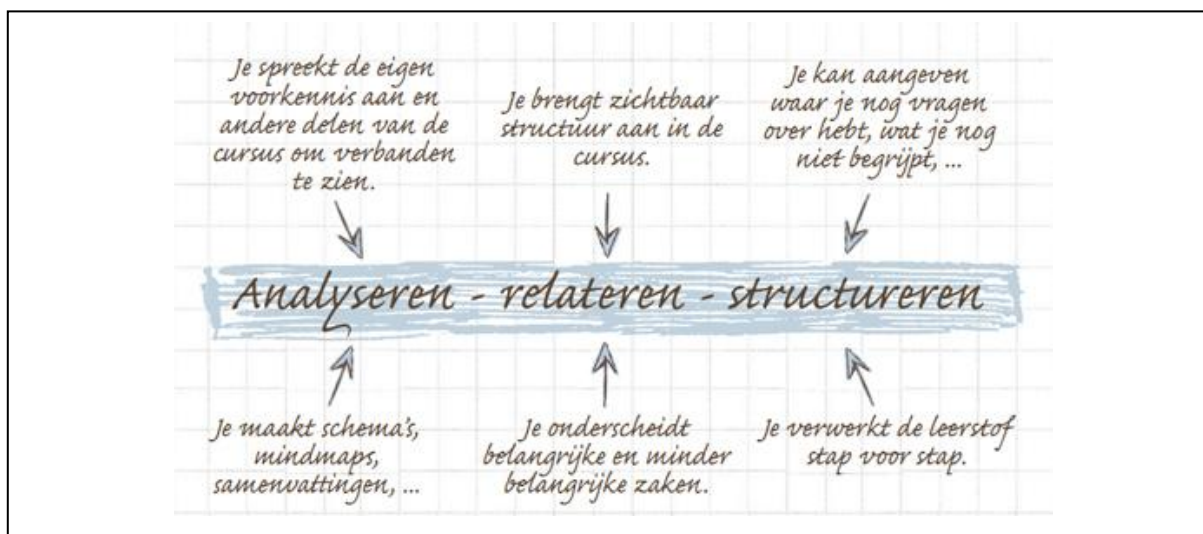 Je spreekt de eigen
voorkennis aan en
andere delen van de
cursus om verbanden
te zien.
Je brengt zichtbaar
structuur aan in de
cursus.
Je kan aangeven
waar je nog vragen
over hebt, wat je nog
niet begrijpt, ...
Analyseren - relateren - structureren
Je maakt schema's,
mindmaps,
samenvattingen, ...
Je onderscheidt
belangrijke en minder
belangrijke zaken.
Je verwerkt de leerstof
stap voor stap.